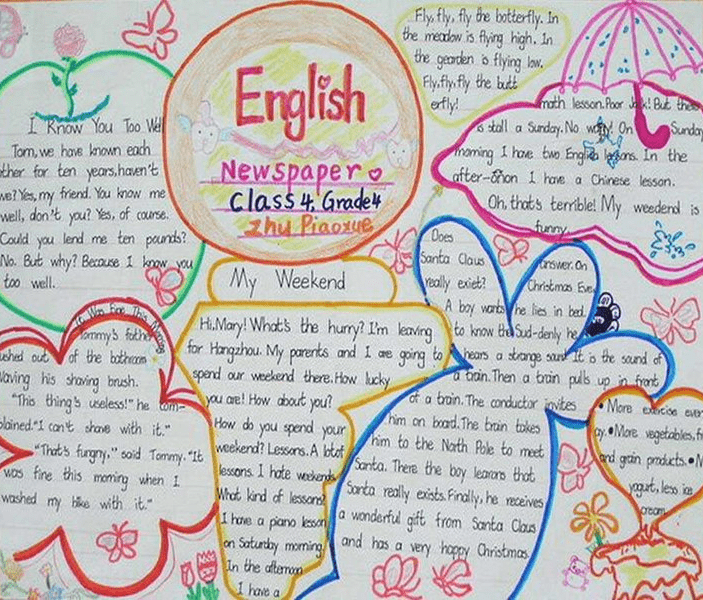 English
Newspaper
Class 4. Grade4
Zhu Piaoxue
I Know You Too Well
Tom, we have known each
ther for ten years, haven't
we? Yes, my friend. You know me
well, don't you? Yes, of course.
Could you lend me ten pounds?
No. But why? Because I know you
too well.
Fly, fly, fly the botterfly. In
the meadow is flying high. In
the gearden is flying low.
Fly, fly, fly the butt
erfly!
math lesson. Poor Jack! But there
is stall a Sunday. No worry! On Sunday
morning I have two English lessons. In the
after-onon I have a Chinese lesson.
Oh, that's terrible! My weedend is
funny.
It Was Fine This Morning
Tommy's father
ushed out of the bathroom
Waving his shaving brush.
"This thing's useless!" he com-
plained. "I can't shave with it."
"That's fungny," said Tommy. "It
was fine this morning when I
washed my bike with it."
My Weekend
Hi, Mary! What's the hurry? I'm leaving
for Hangzhou. My parents and I are going to
spend our weekend there. How lucky
you are! How about you?
How do you spend your
weekend? Lessons. A lot of
lessons. I hate weekends
What kind of lessons?
I have a piano lesson
on Saturday morning.
In the afternoon
I have a
Does
Santa Claus answer. On
really exiet? Christmas Eve,
A boy wants he lies in bed.
to know the Sud-denly he
hears a strange sound. It is the sound of
a train. Then a train pulls up in front
of a train. The conductor invites
him on board. The train takes
him to the North Pole to meet
Santa. There the boy learons that
Santa really exists. Finally, he receives
a wonderful gift from Santa Claus
and has a very happy Christmas.
• More exercise ever
ay. • More vegetables, fr
and grain products. • M
yogurt, less ice
cream.